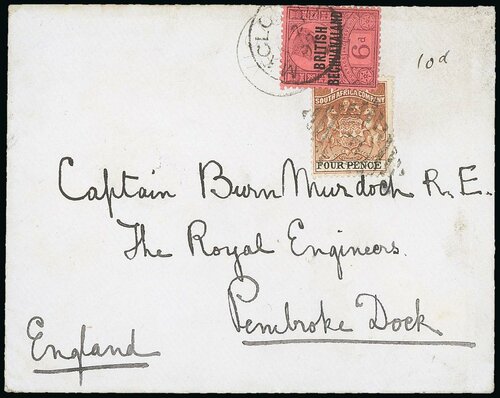 BRITISH
BECHUANALAND
6d
10d
SOUTH AFRICA COMPANY
FOUR PENCE
Captain Burn Murdoch R.E.
The Royal Engineers.
Pembroke Dock
England